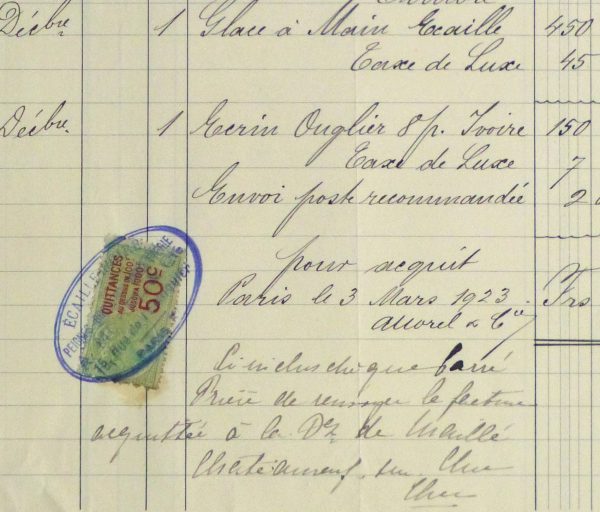 Décbre 1 Glace à Main Ecaille 450
Taxe de Luxe 45
Décbre. 1 Ecrin Onglier 8 p. Ivoire 150
Taxe de Luxe 7
Envoi poste recommandée 2
pour acquit
Paris le 3 Mars 1923. Frs
& Cie
ÉCAILLE
QUITTANCES
50c
PARIS
Ci inclus chèque barré
Prière de renvoyer la facture
acquittée à la Dsse de Maillé
Châteauneuf sur Cher
Cher